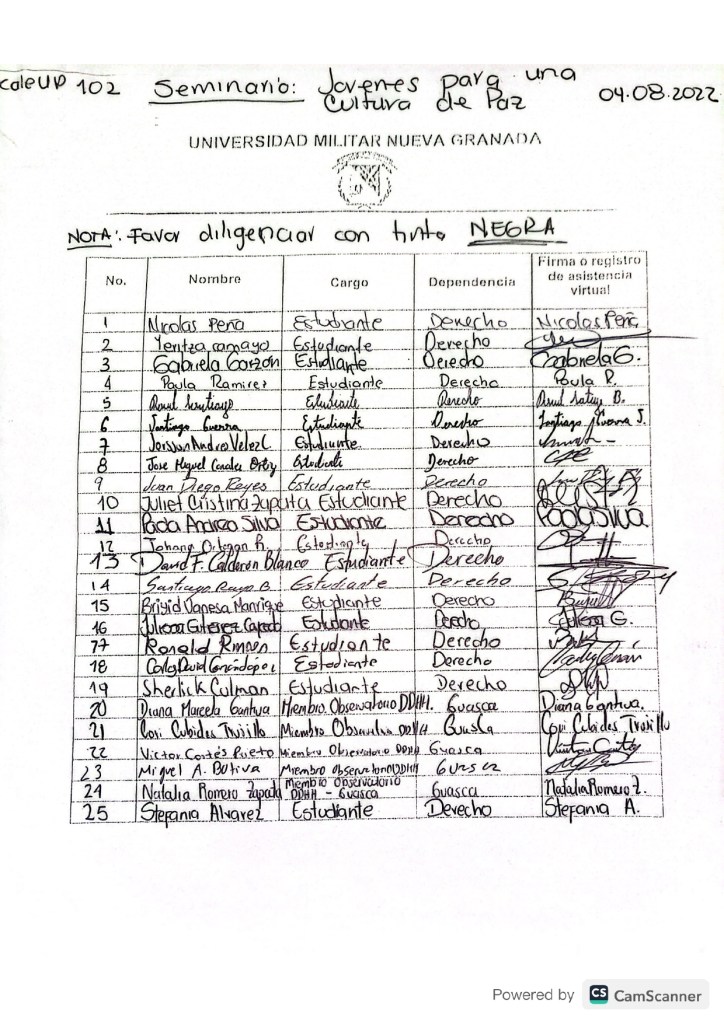 caleUD 102 Seminario: Jovenes para una Cultura de Paz 04.08.2022
UNIVERSIDAD MILITAR NUEVA GRANADA
NOTA: Favor diligenciar con tinta NEGRA
No. Nombre Cargo Dependencia Firma o registro de asistencia virtual
1 Nicolas Peña Estudiante Derecho Nicolas Peña
2 Yeritza camayo Estudiante Derecho
3 Gabriela Garzón Estudiante Derecho Gabriela G.
4 Paula Ramirez Estudiante Derecho Paula R.
5 Santiago Estudiante Derecho
6 Santiago Guerra Estudiante Derecho Santiago Guerra J.
7 Velez C Estudiante Derecho
8 Jose Miguel Estudiante Derecho
9 Juan Diego Reyes Estudiante Derecho
10 Juliet Cristina Zapata Estudiante Derecho
11 Paola Andrea Silva Estudiante Derecho Paola Silva
12 Johann R. Estudiante Derecho
13 David F. Calderón Blanco Estudiante Derecho
14 Santiago B. Estudiante Derecho
15 Briyid Vanesa Manrique Estudiante Derecho
16 Estudiante Derecho G.
17 Ronald Estudiante Derecho
18 David Estudiante Derecho
19 Sherlick Culman Estudiante Derecho
20 Diana Marcela Gantiva Miembro Observatorio DDHH. Guasca Diana Gantiva.
21 Cori Cubides Trujillo Miembro DDHH Guasca Cori Cubides Trujillo
22 Victor Cortés Prieto Miembro Observatorio DDHH Guasca
23 Miguel A. Botiva Miembro Observatorio DDHH Guasca
24 Natalia Romero Zapata Miembro Observatorio DDHH - Guasca Guasca Natalia Romero Z.
25 Stefania Alvarez Estudiante Derecho Stefania A.
Powered by CS CamScanner